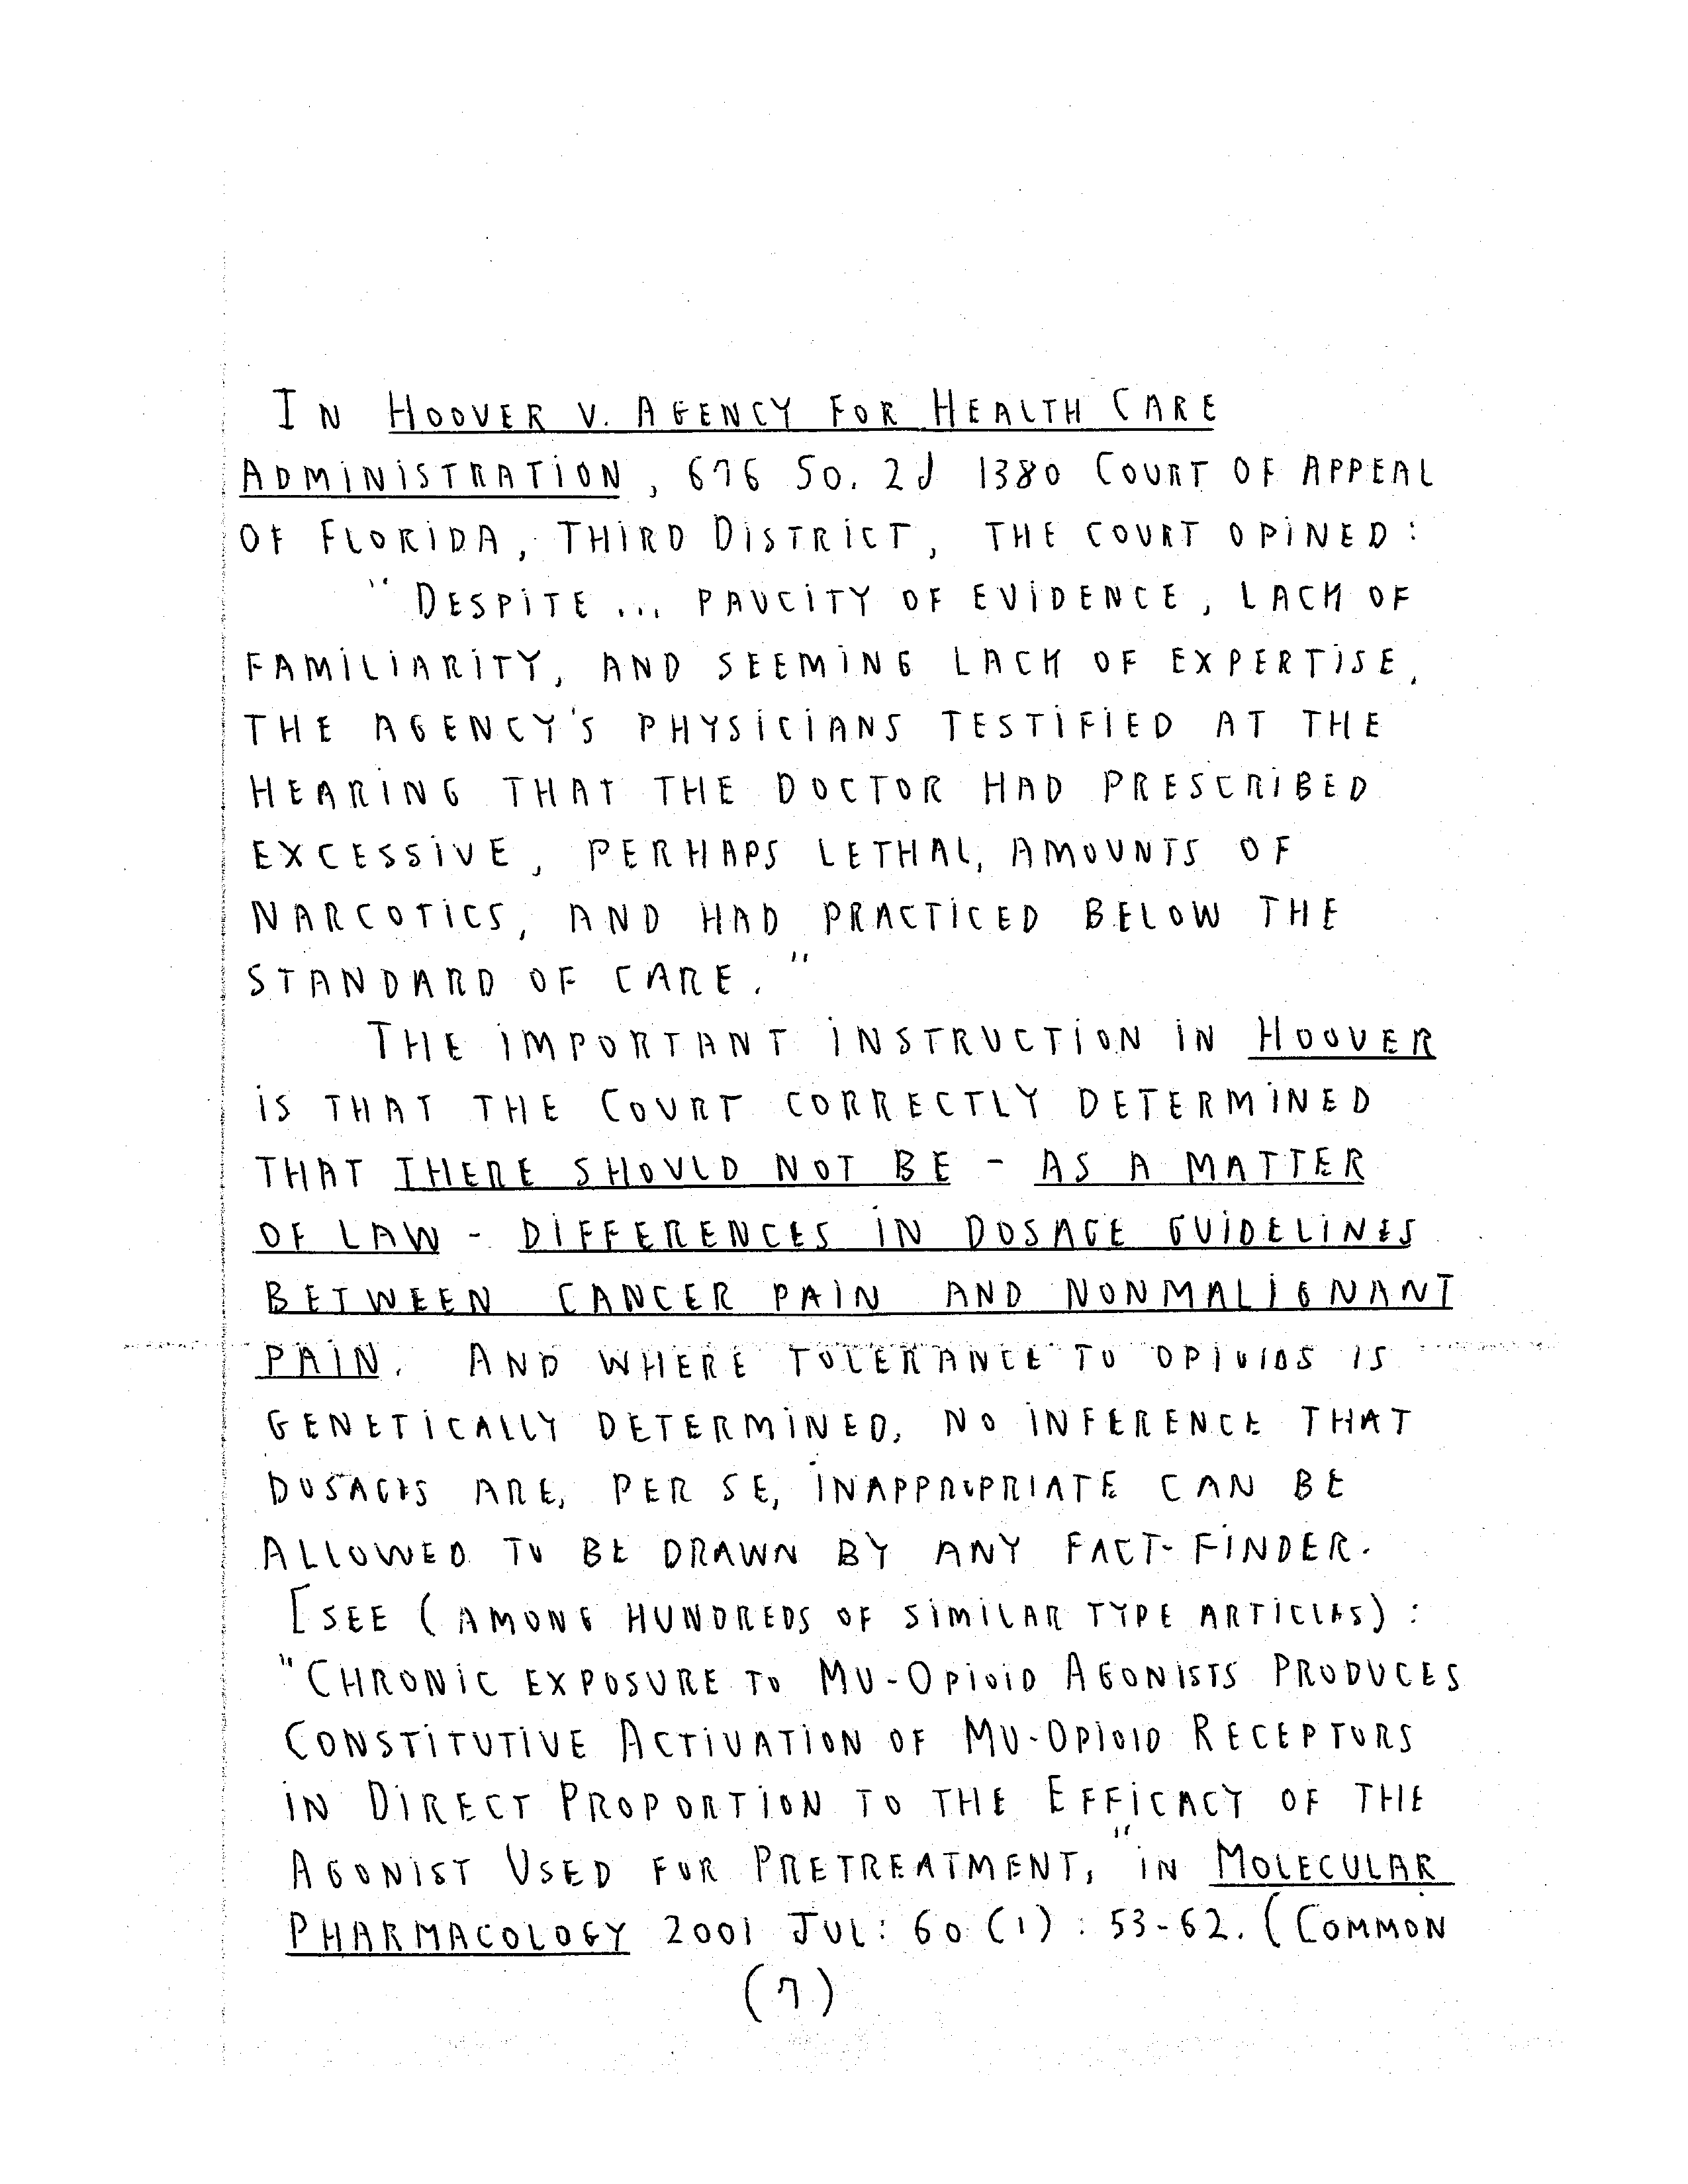 In Hoover v. Agency for Health Care
Administration, 676 So. 2d 1380 Court of Appeal
of Florida, Third District, the court opined:
"Despite ... paucity of evidence, lack of
familiarity, and seeming lack of expertise,
the agency's physicians testified at the
hearing that the doctor had prescribed
excessive, perhaps lethal, amounts of
narcotics, and had practiced below the
standard of care."
The important instruction in Hoover
is that the Court correctly determined
that there should not be - as a matter
of law - differences in dosage guidelines
between cancer pain and nonmalignant
pain. And where tolerance to opioids is
genetically determined, no inference that
dosages are, per se, inappropriate can be
allowed to be drawn by any fact-finder.
[see (among hundreds of similar type articles):
"Chronic exposure to Mu-Opioid Agonists Produces
Constitutive Activation of Mu-Opioid Receptors
in Direct Proportion to the Efficacy of the
Agonist Used for Pretreatment," in Molecular
Pharmacology 2001 Jul: 60 (1) : 53-62. (Common
(7)